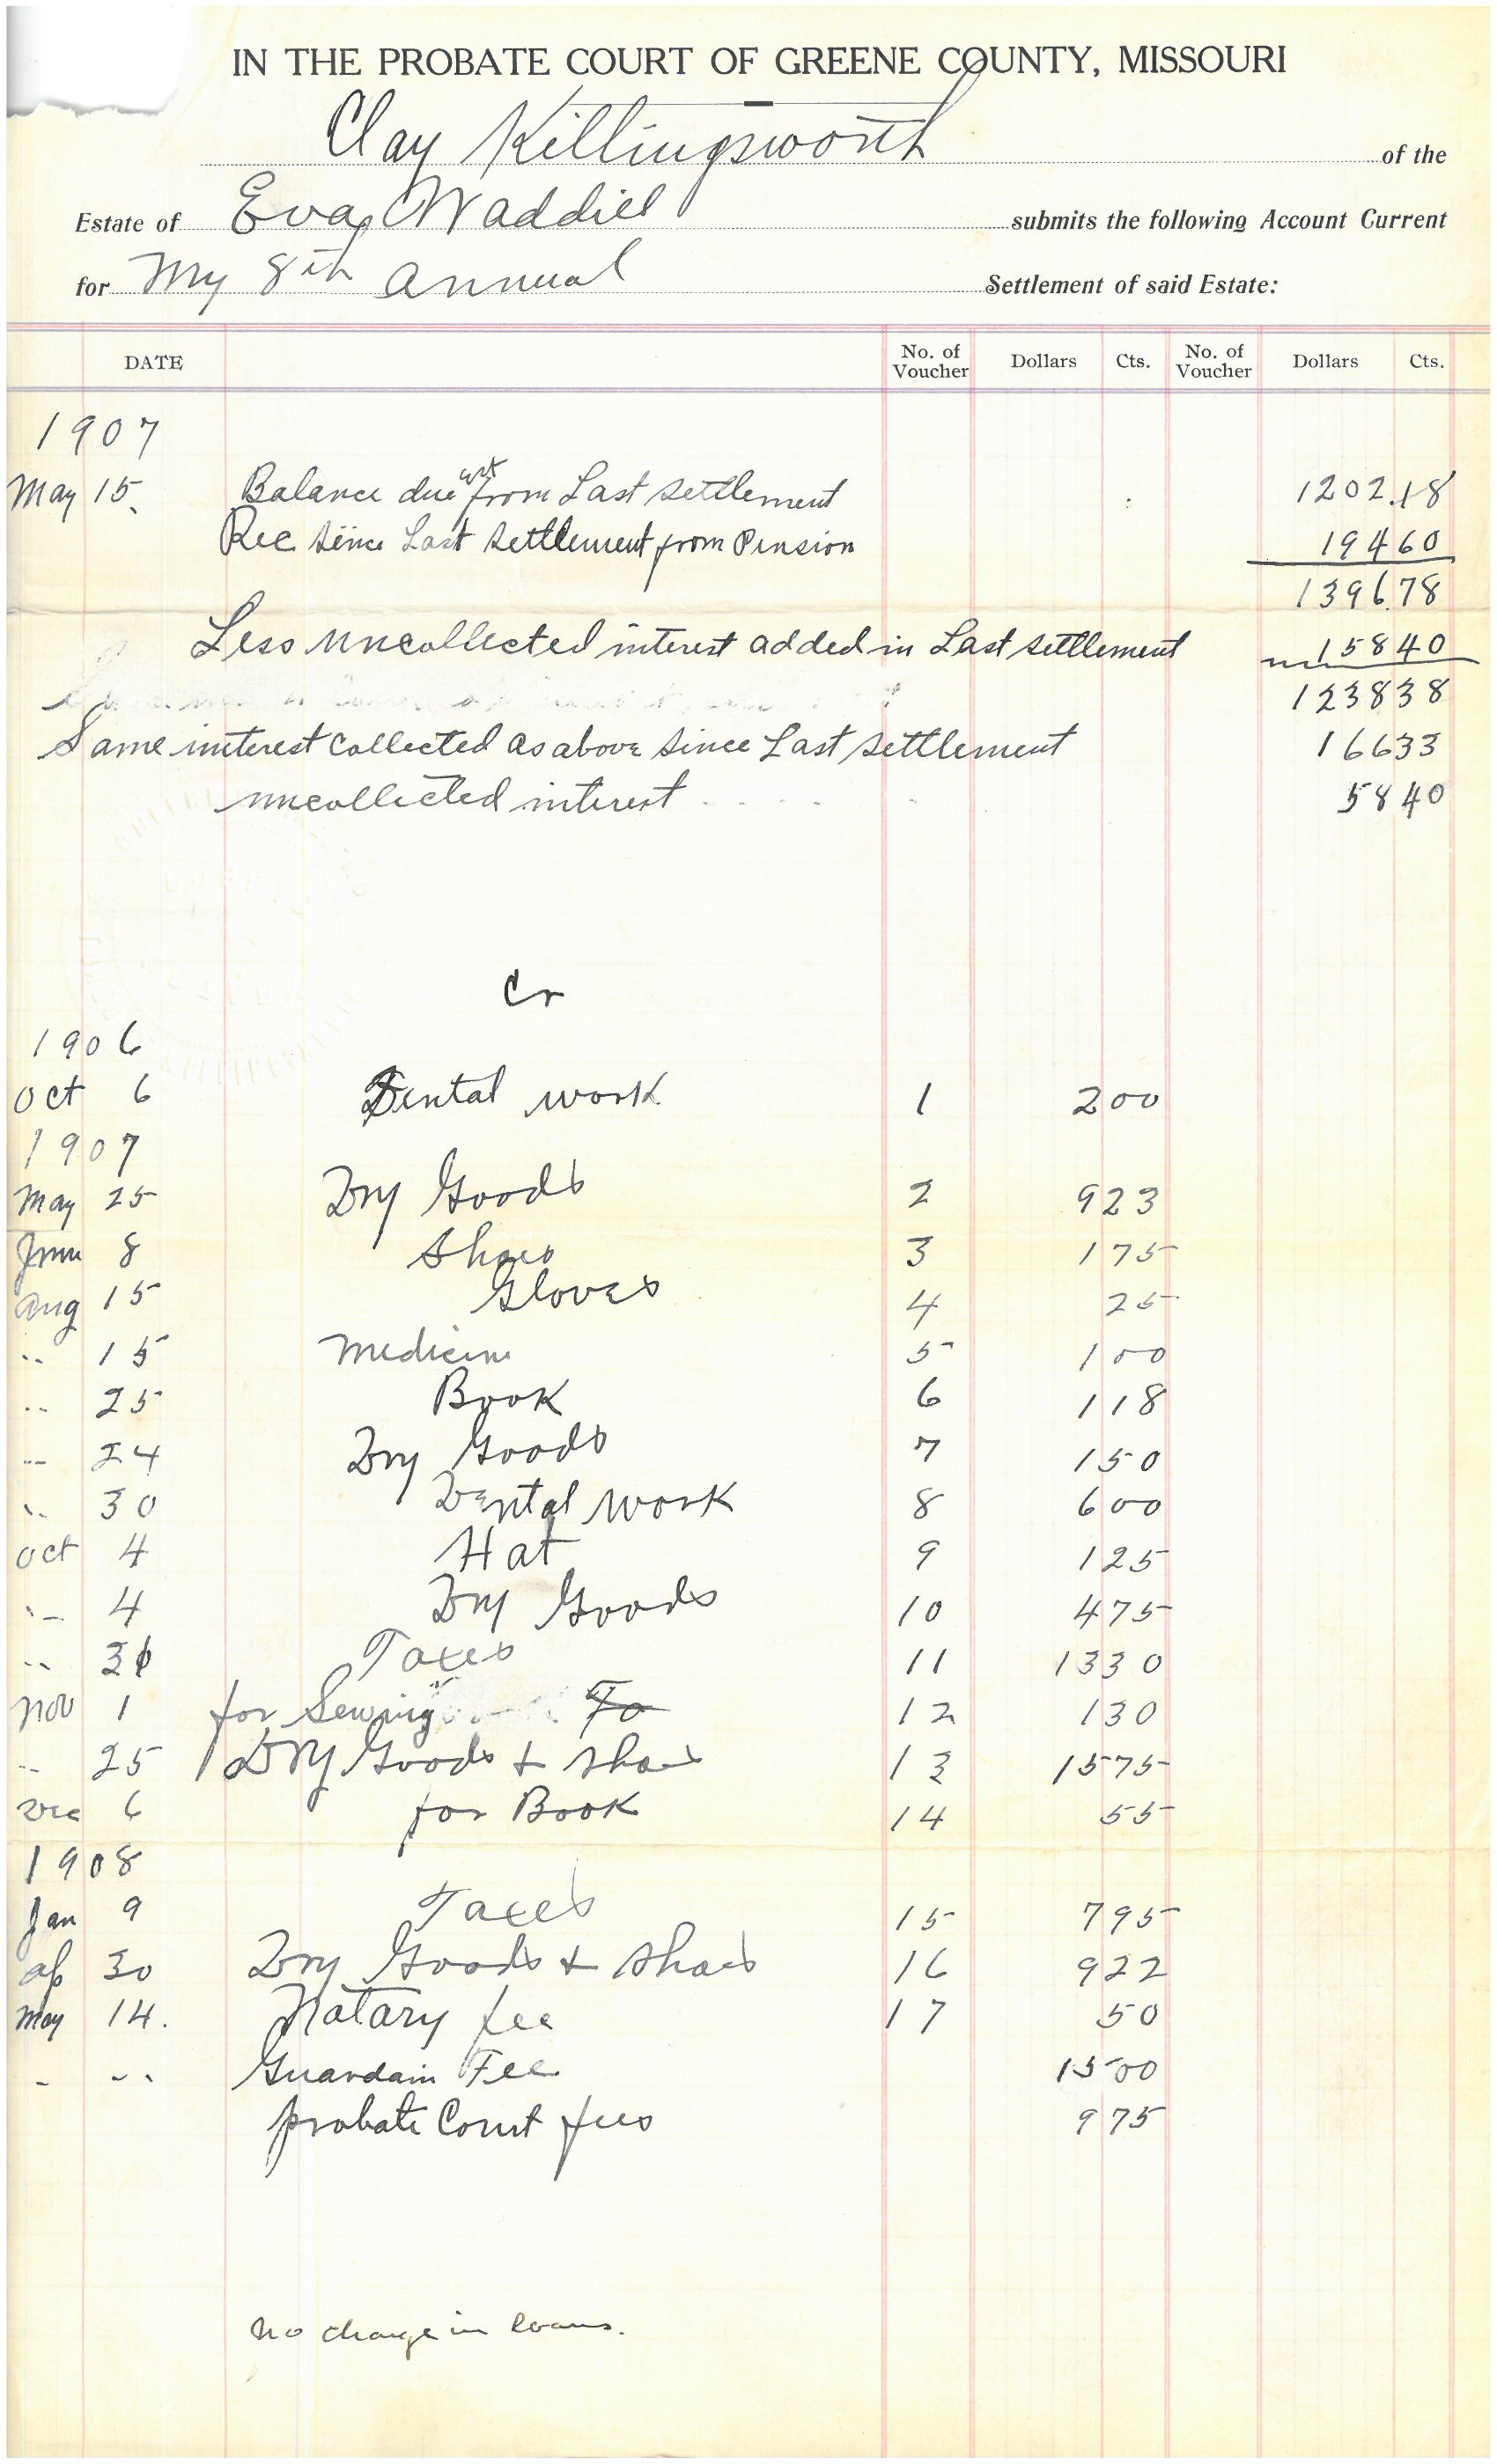 IN THE PROBATE COURT OF GREENE COUNTY, MISSOURI
Clay Killingsworth of the
Estate of Eva Waddill submits the following Account Current
for My 8th Annual Settlement of said Estate:
DATE No. of Voucher Dollars Cts. No. of Voucher Dollars Cts.
1907
May 15. Balance due est from Last settlement 1202.18
Rec since Last settlement from Pension 194 60
1396.78
Less uncollected interest added in Last settlement 158 40
1238 38
Same interest collected as above since Last settlement 166 33
uncollected interest 58 40
Cr
1906
Oct 6 Dental work 1 2 00
1907
May 25 Dry Goods 2 9 23
June 8 Shoes 3 1 75
Aug 15 Gloves 4 25
" 15 Medicine 5 1 00
" 25 Book 6 1 18
" 24 Dry Goods 7 1 50
" 30 Dental work 8 6 00
Oct 4 Hat 9 1 25
" 4 Dry Goods 10 4 75
" 31 Taxes 11 13 30
Nov 1 for Sewing To 12 1 30
" 25 Dry Goods + Shoes 13 15 75
Dec 6 for Book 14 55
1908
Jan 9 Taxes 15 7 95
Ap 30 Dry Goods + Shoes 16 9 22
May 14. Notary fee 17 50
" " Guardain Fee 15 00
Probate Court fees 9 75
No change in loans.